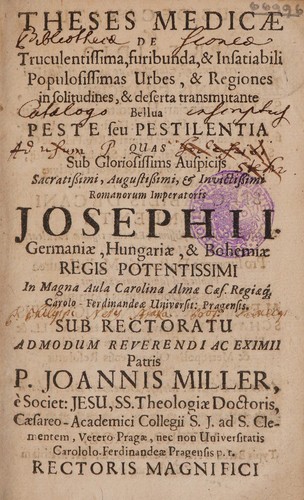 66996
THESES MEDICÆ
Bibliothecæ
DE
Truculentissima, furibunda, & Insatiabili
Populosissimas Urbes, & Regiones
in solitudines, & deserta transmutante
Catalogo Bellua inscriptus
PESTE seu PESTILENTIA
Ad usum P.
QUAS
Sub Gloriosissimis Auspiciis
Sacratissimi, Augustissimi, & Invictissimi
Romanorum Imperatoris
JOSEPHI I.
Germaniæ, Hungariæ, & Bohemiæ
REGIS POTENTISSIMI
In Magna Aula Carolina Almæ Cæs. Regiæq́;
Carolo-Ferdinandeæ Universit: Pragensis.
SUB RECTORATU
ADMODUM REVERENDI AC EXIMII
Patris
P. JOANNIS MILLER,
è Societ: JESU, SS. Theologiæ Doctoris,
Cæsareo-Academici Collegii S. J. ad S. Cle-
mentem, Vetero Pragæ, nec non Universitatis
Carololo-Ferdinandeæ Pragensis p. t.
RECTORIS MAGNIFICI